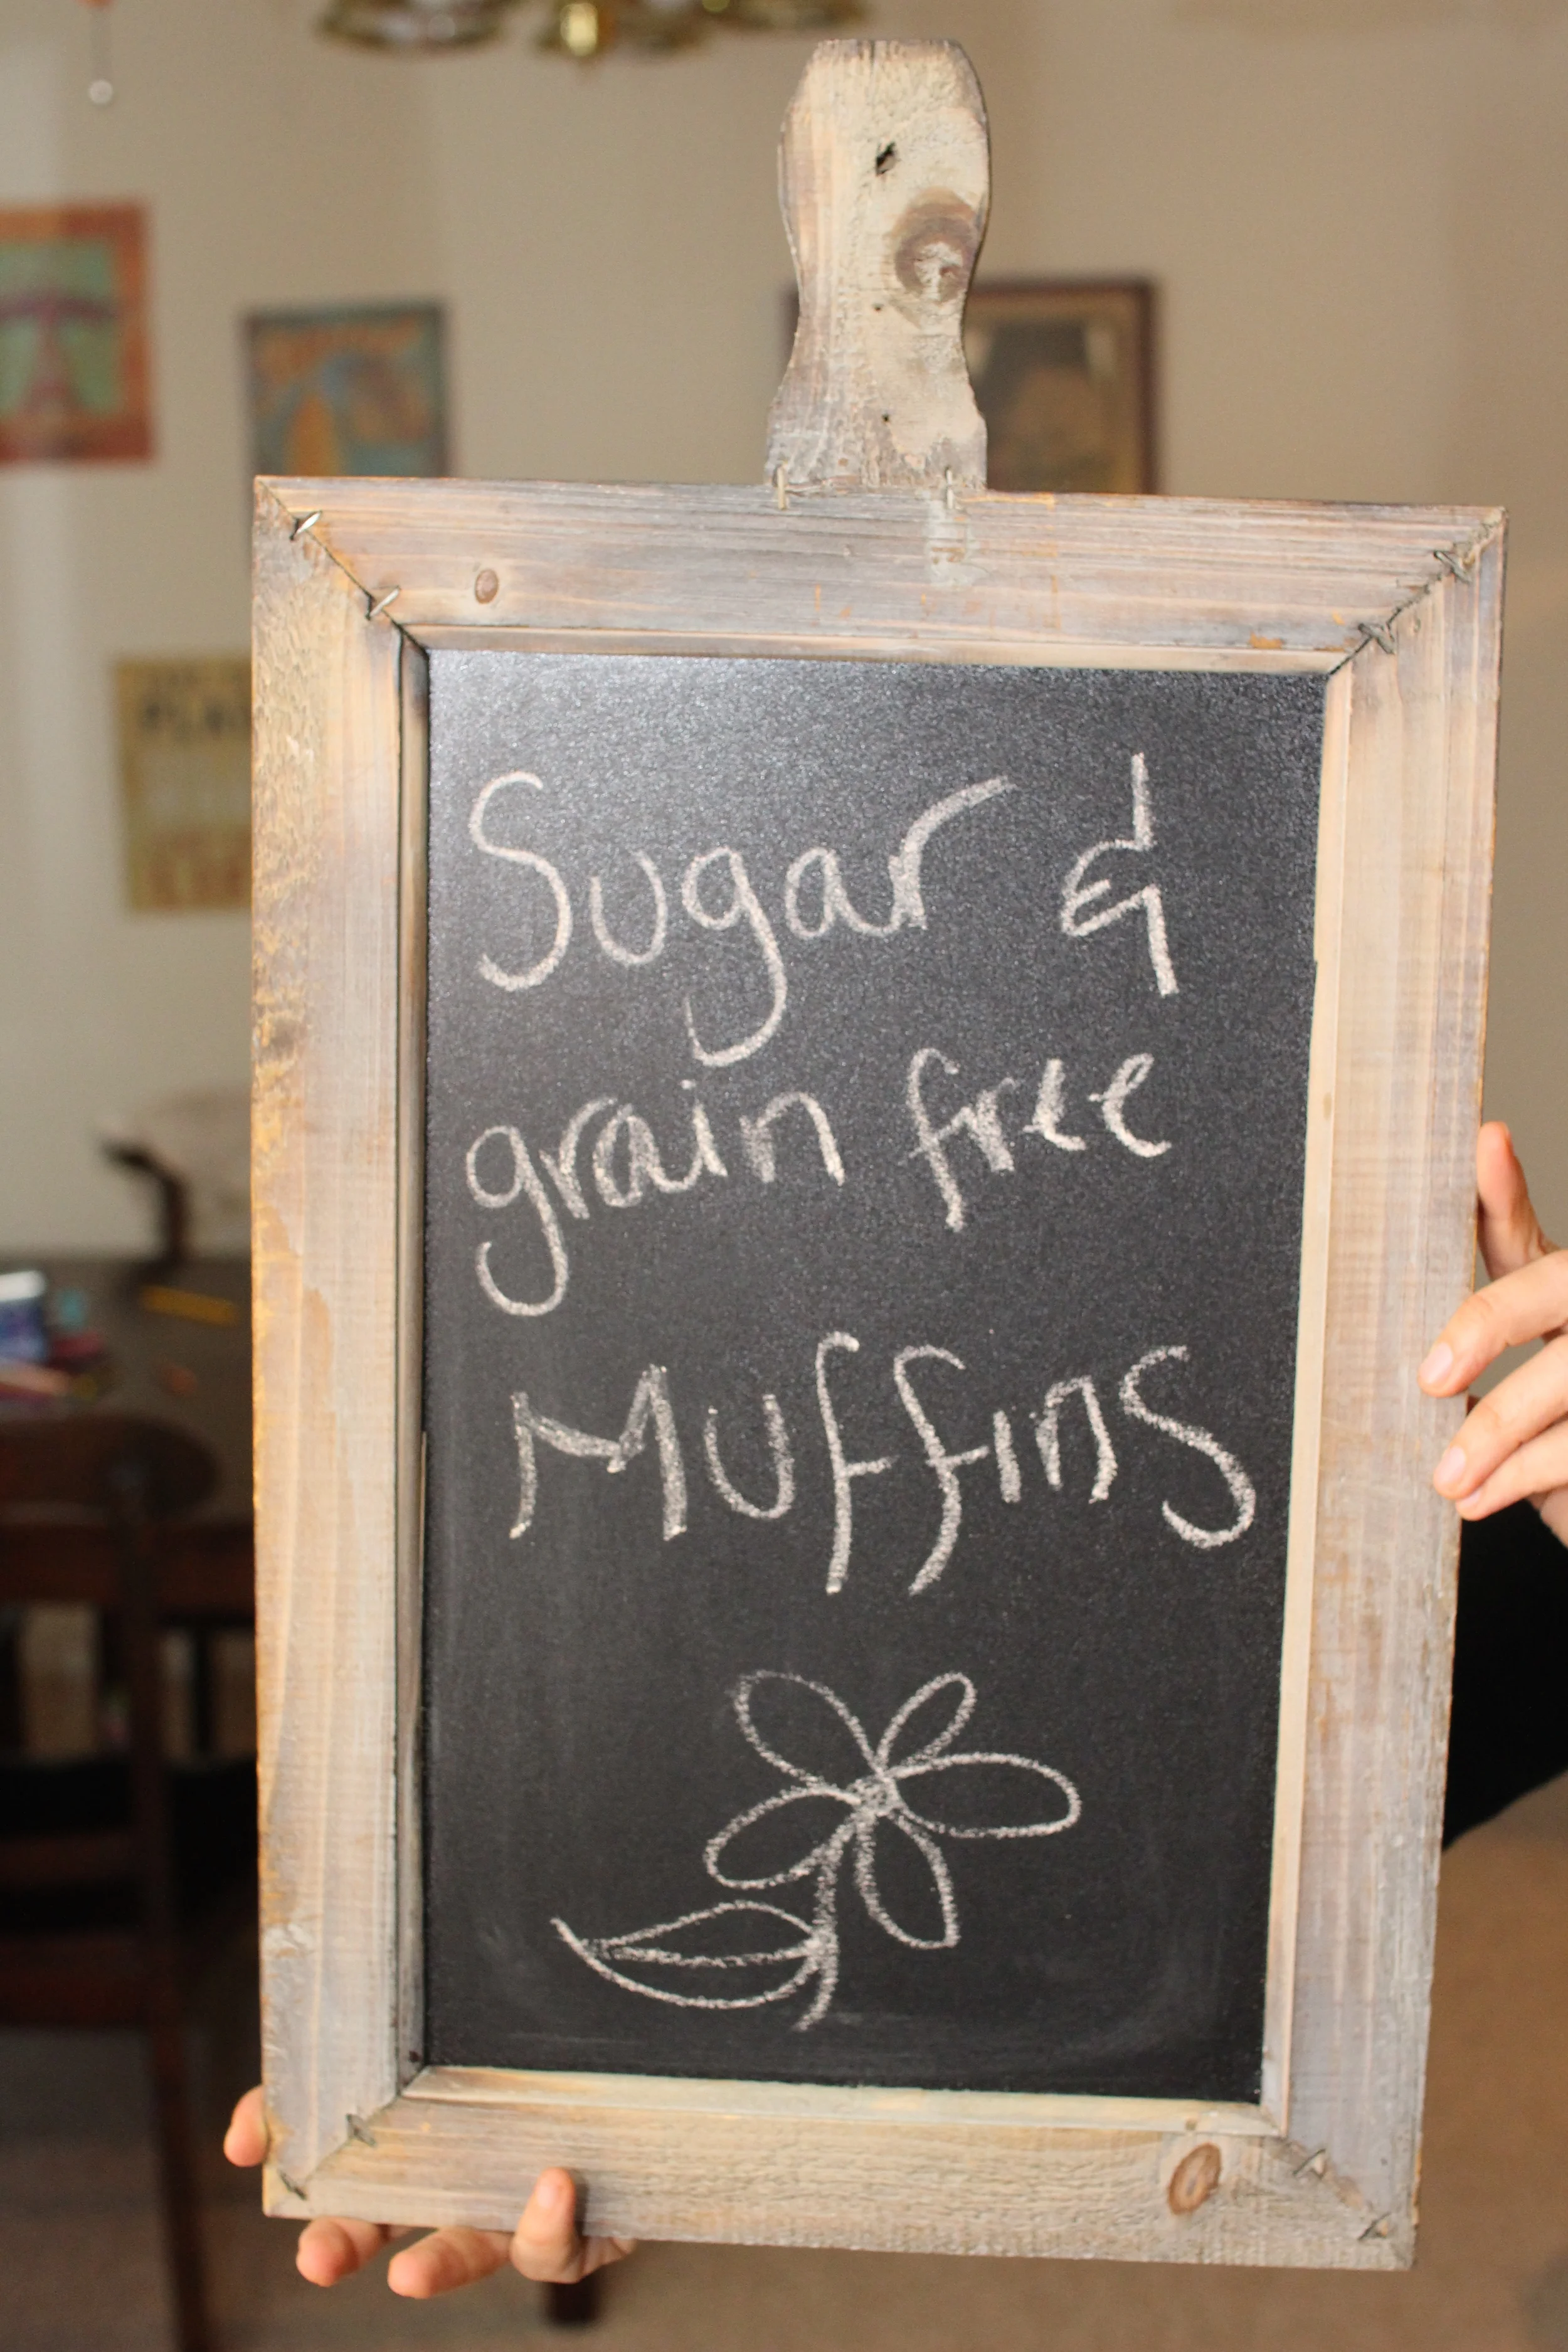 Sugar &
grain free
Muffins